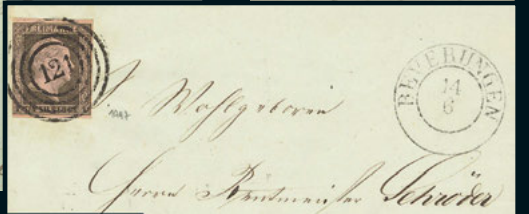 FREIMARKE
121
BEVERUNGEN
14
6
S. Wohlgeboren
Herrn Rentmeister Schröder